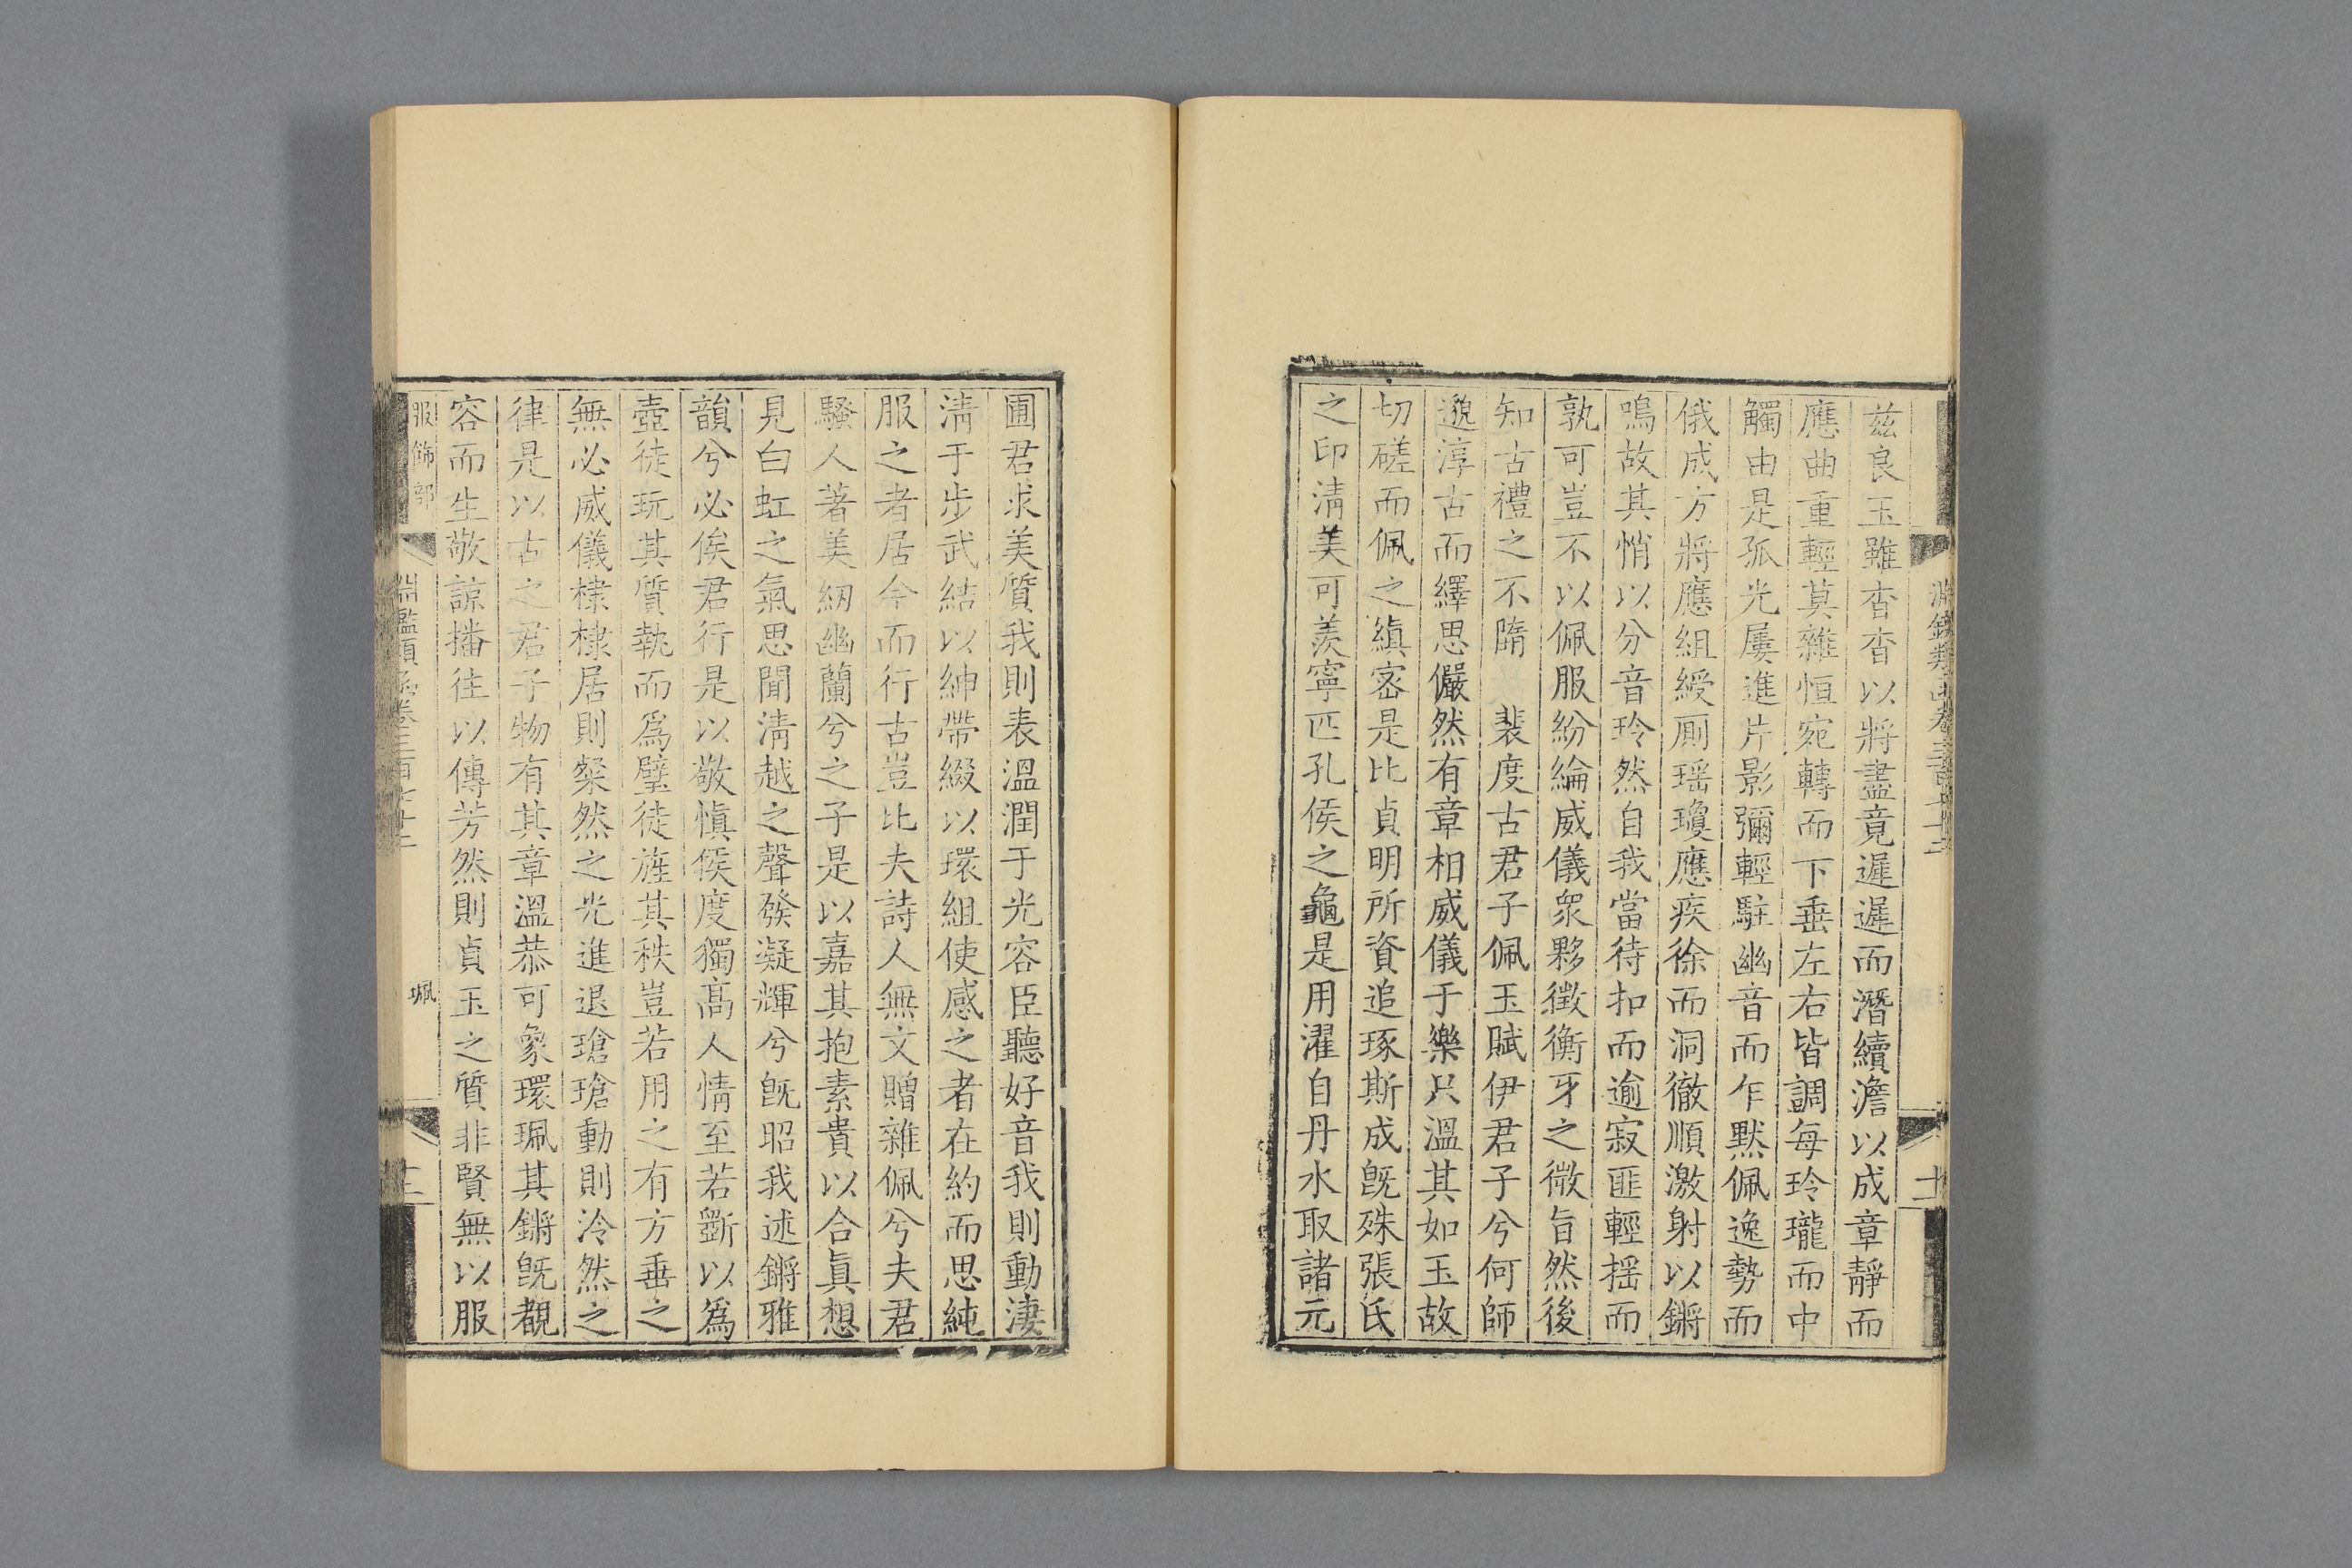 茲良玉雖杳杳以將盡竟遲遲而潛續澹以成章靜而
應曲重輕莫雜恒宛轉而下垂左右皆調每玲瓏而中
觸由是孤光屢進片影彌輕駐幽音而乍默佩逸勢而
俄成方將應組綬厠瑶瓊應疾徐而洞徹順激射以鏘
鳴故其悄以分音玲然自我當待扣而逾寂匪輕揺而
孰可豈不以佩服紛綸威儀衆夥徴衡牙之微旨然後
知古禮之不隋 裴度古君子佩玉賦伊君子兮何師
邈淳古而繹思儼然有章相威儀于樂只溫其如玉故
切磋而佩之縝宻是比貞明所資追琢斯成旣殊張氏
之印淸美可羨寧匹孔侯之龜是用濯自丹水取諸元
圃君求美質我則表溫潤于光容臣聽好音我則動淒
淸于步武結以紳帶綴以環組使感之者在約而思純
服之者居今而行古豈比夫詩人無文贈雜佩兮夫君
騷人著美紉幽蘭兮之子是以嘉其抱素貴以合眞想
見白虹之氣思聞淸越之聲發凝輝兮旣昭我述鏘雅
韻兮必俟君行是以敬愼侯度獨高人情至若斵以爲
壺徒玩其質執而爲璧徒旌其秩豈若用之有方垂之
無必威儀棣棣居則粲然之光進退瑲瑲動則泠然之
律是以古之君子物有其章溫恭可象環珮其鏘旣覩
容而生敬諒播往以傳芳然則貞玉之質非賢無以服
服飾部 淵鑑類函卷三百七十三 珮 十二